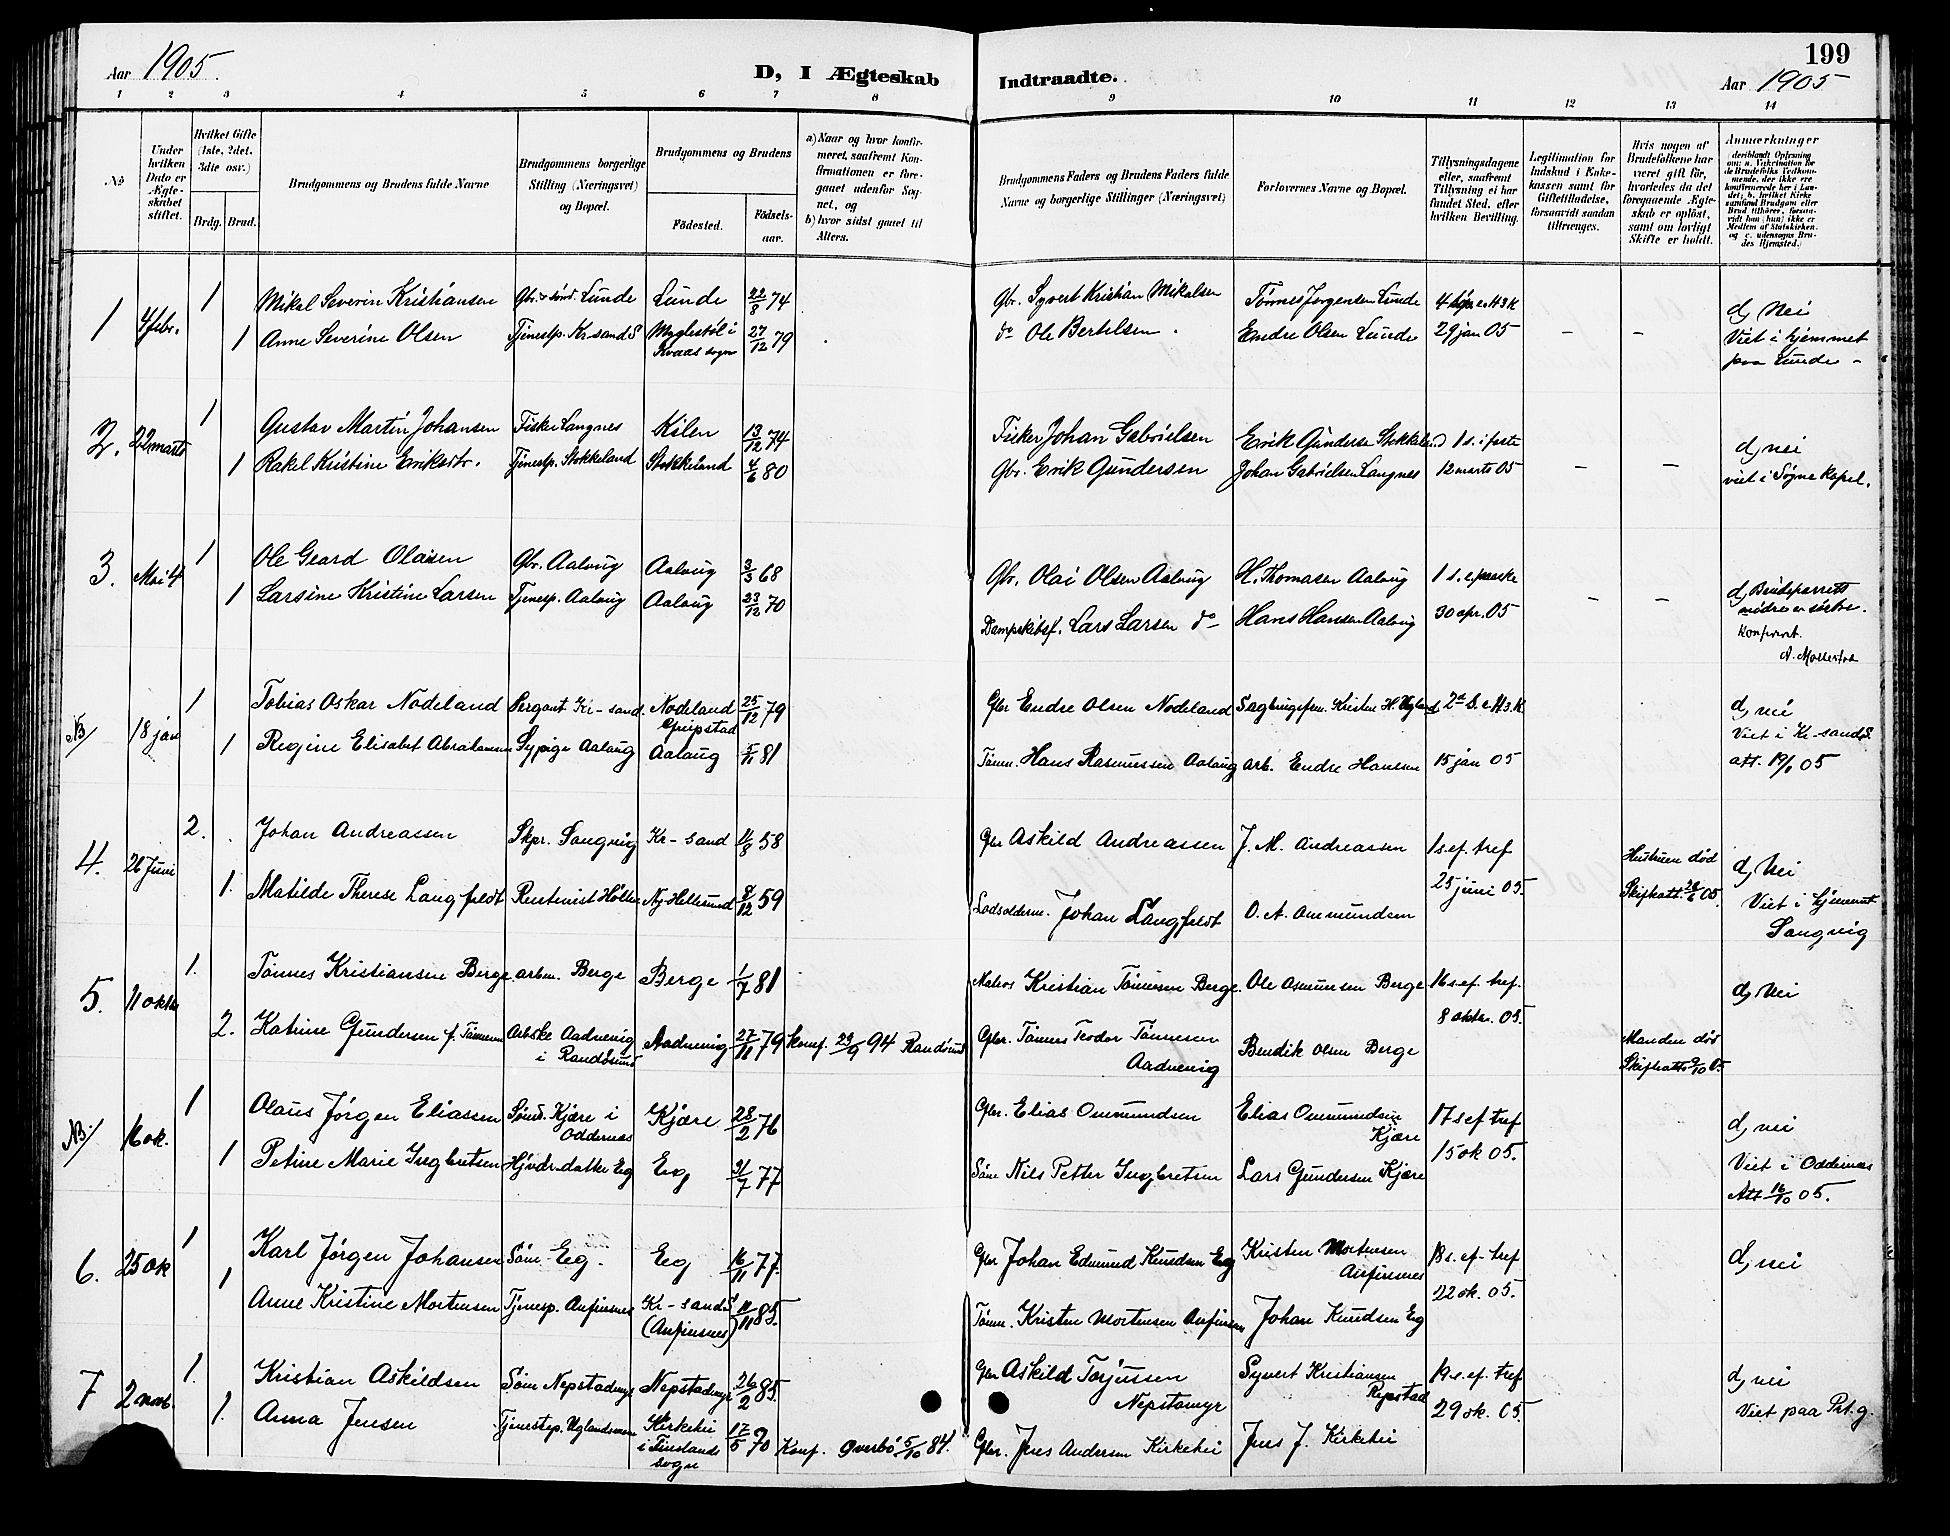 Aar 1905.
D, I Ægteskab
Indtraadte.
199
Aar 1905
1 2 3 4 5 6 7 8 9 10 11 12 13 14
No
Under hvilken Dato er Ægteskabet stiftet.
Hvilket Gifte (1ste, 2det, 3die osv.)
Brdg. Brud.
Brudgommens og Brudens fulde Navne
Brudgommens borgerlige Stilling (Næringsvei) og Bopæl.
Brudgommens og Brudens
Fødested.
Fødselsaar.
a) Naar og hvor konfirmeret, saafremt Konfirmationen er foregaaet udenfor Sognet, og
b) hvor sidst gaaet til Alters.
Brudgommens Faders og Brudens Faders fulde Navne og borgerlige Stillinger (Næringsvei)
Forlovernes Navne og Bopæl.
Tillysningsdagene eller, saafremt Tillysning ei har fundet Sted, efter hvilken Bevilling.
Legitimation for Indskud i Enkekassen samt for Giftetilladelse, forsaavidt saadan tiltrænges.
Hvis nogen af Brudefolkene har været gift før, hvorledes da det foregaaende Ægteskab er opløst, samt om lovligt Skifte er holdt.
Anmærkninger
1 4 febr. 1 Mikal Severin Kristiansen Gbr. & snd. Lunde Lunde 22/8 74 Gbr. Syvert Kristian Mikalsen Tønnes Jørgensen Lunde 4 e. H3K d, Nei
1 Anne Severine Olsen Tjenestp. Kr.sand S Myglestøl i Kvaas sogn 27/12 79 do Ole Bertelsen. Endre Olsen Lunde 29 jan 05 – – Viet i hjemmet
paa Lunde –
2. 22 marts 1 Gustav Martin Johansen Fisker Langnes Kilen 13/12 74 Fisker Johan Gabrielsen Erik Gunderse Stokkeland 1 s. i faste d, nei
1 Rakel Kristine Eriksdtr. Tjenestp. Stokkeland Stokkeland 4/6 80 Gbr. Erik Gundersen Johan Gabrielsen Langnes 12 marts 05 – – viet i Søgne Kapel.
3. Mai 4 1 Ole Geard Olaisen Gbr. Aalvug Aalvug 3/3 68 Gbr. Olai Olsen Aalvug H. Thomasen Aalvug 1 s. e. paaske d, Brudeparrets
1 Larsine Kristine Larsen Tjenesp. Aalvug Aalvug 23/12 70 Dampskibsf. Lars Larsen do Hans Hansen Aalvug 30 apr. 05 – – mødre er søstre.
NB/ 18 jan 1 Tobias Oskar Nodeland Sergant Kr-sand. Nodeland Greipstad 25/12 79 Gbr Endre Olsen Nodeland Kristen H. Ugland 2d S. e H.3.K d, nei
1 Regine Elisabet Abrahamsen Sypige Aalaug Aalaug 5/11 81 Tømm. Hans Rasmussen Aalaug arb. Endre Hansen 15 jan 05 Viet i Kr-sand S.
att. 19/1 05
4. 26 Juni 2. Johan Andreassen Skpr. Sangvig Kr-sand 11/8 58 Gbr Askild Andreassen J. M. Andreassen 1 s. ef. tref Hustruen død d, Nei
1. Matilde Therese Langfeldt Rentenist Høllen Ny-Hellesund 8/12 59 Lodsolderm. Johan Langfeldt O. A. Ommundsen 25 juni 05. Skifteatt. 28/6 05. Viet i hjemmet
Sangvig
5. 11 oktbr 1. Tønnes Kristiansen Berge arbm. Berge Berge 1/7 81 Matros Kristian Tønnesen Berge. Ole Asmunsen Berge 16 s. ef. tref. d, Nei
2. Katrine Gundersen f. Tønnesen Arbske Aadnevig i Randøsund Aadnevig 27/11 79 konf. 23/9 94 Randøsund Gbr. Tønnes Teodor Tønnesen Aadnevig Bendik Olsen Berge 8 oktbr. 05. Manden død
Skifteatt. 9/10 05.
NB/ 16 ok. 1 Olaus Jørgen Eliassen Sømd. Kjære i Oddernes Kjære 28/2 76 Gbr. Elias Ommundsen Elias Ommundsen Kjære 17 s ef tref d, nei
1 Petine Marie Ingbretsen Hjvdr-datter Eg Eg 31/7 77 Søm Nils Petter Ingbretsen Lars Gundersen Kjære 15 ok 05. Viet i Oddernes
Att 16/10 05.
6. 25 ok 1 Karl Jørgen Johansen Søm. Eeg. Eeg 16/11 77. Gbr Johan Edmund Knudsen Eeg Kristen Mortensen Anfinsnes 18 s. ef. tref d, nei
1 Anne Kristine Mortensen Tjenesp. Anfinsnes Kr-sand S (Anfinsnes) 11/11 85. Tømm. Kristen Mortensen Anfinsen Johan Knudsen Eeg 22 ok. 05.
7 2 novb. 1. Kristian Askildsen Søm Nepstadmyr Nepstadmyr 26/2 85. Gbr Askild Torjussen Nepstamyr Syvert Kristiansen Repstad 19 s. ef. tref d, nei
1. Anna Jensen Tjenestep. Uglandsmoen Kirkehei i Finslands sogn 17/5 70 Konf. Øverbø 5/10 84. Gbr. Jens Andersen Kirkehei Jens J. Kirkehei 29 ok. 05. Viet paa Prt. g.